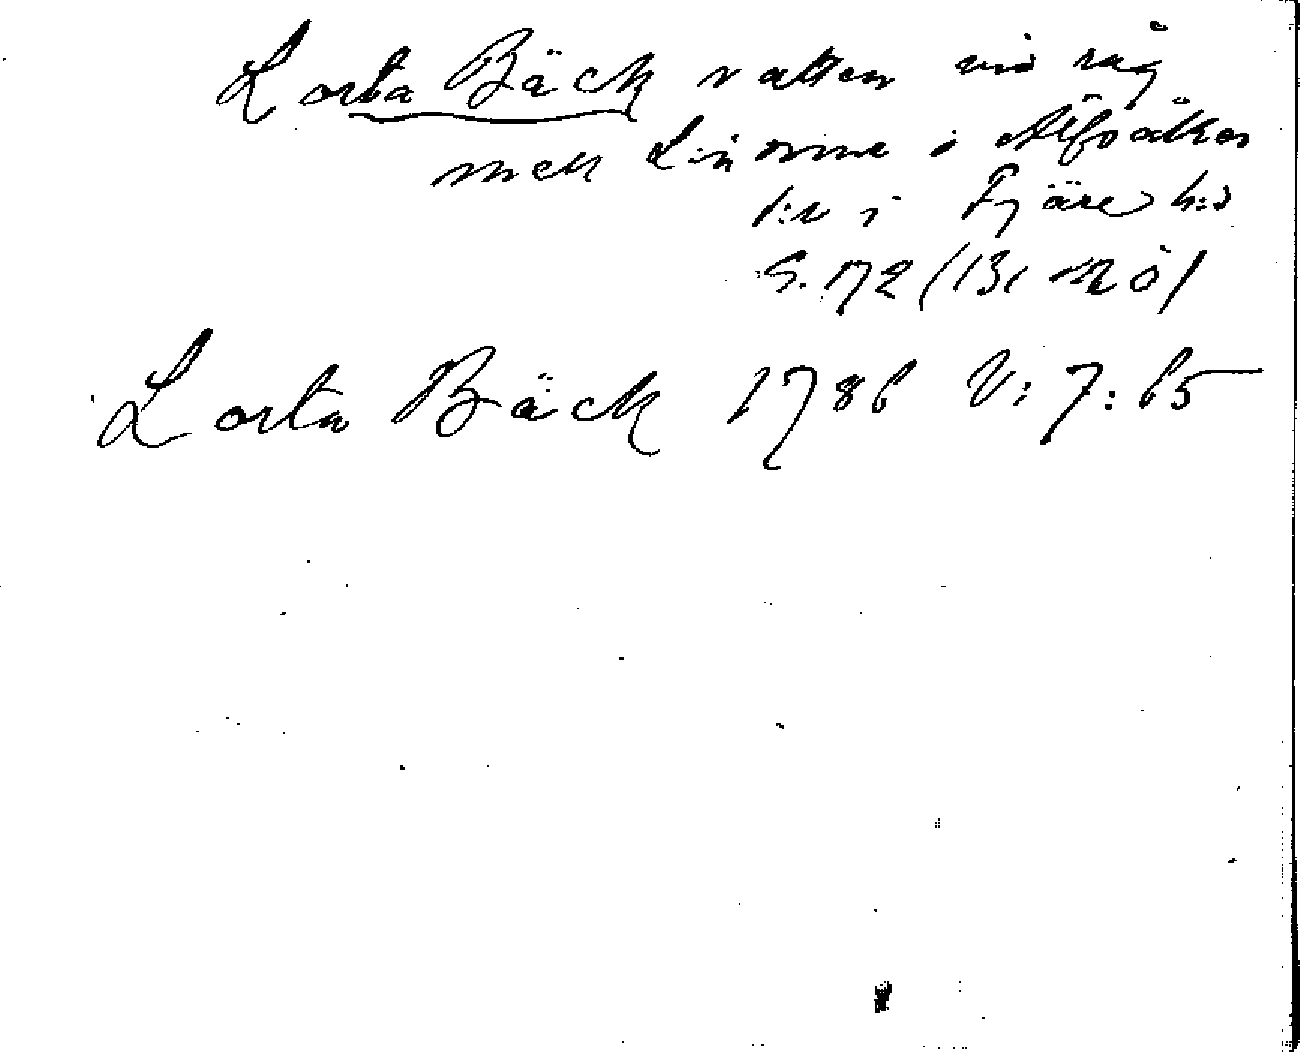 Lorta Bäck vatten vid råg
med Linorne i Älfsåker
s:n i Fjäre h:d
S. 172 (131 NÖ)
Lorta Bäck 1786 V: 7: 65